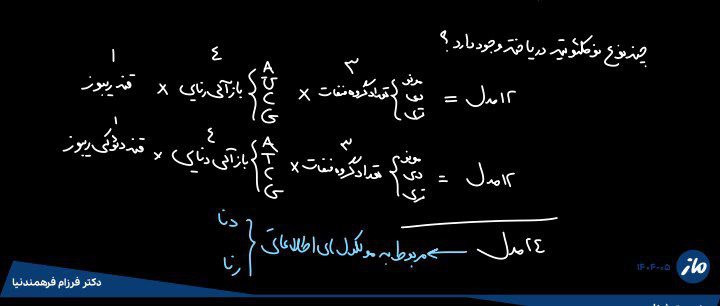 چند نوع نوکلئوتید در یاخته وجود دارد؟
۱ ٤ ۳
قند ریبوز × بازآلی رنایی { A U C G × تعداد گروه فسفات { مونو دی تری = ۱۲ مدل
۱ ٤ ۳
قند دئوکسی ریبوز × بازآلی دنایی { A T C G × تعداد گروه فسفات { مونو دی تری = ۱۲ مدل
۲٤ مدل ← مربوط به مولکول های اطلاعاتی { دنا رنا
ماز ۱۴۰۴-۰۵
دکتر فرزام فرهمندنیا